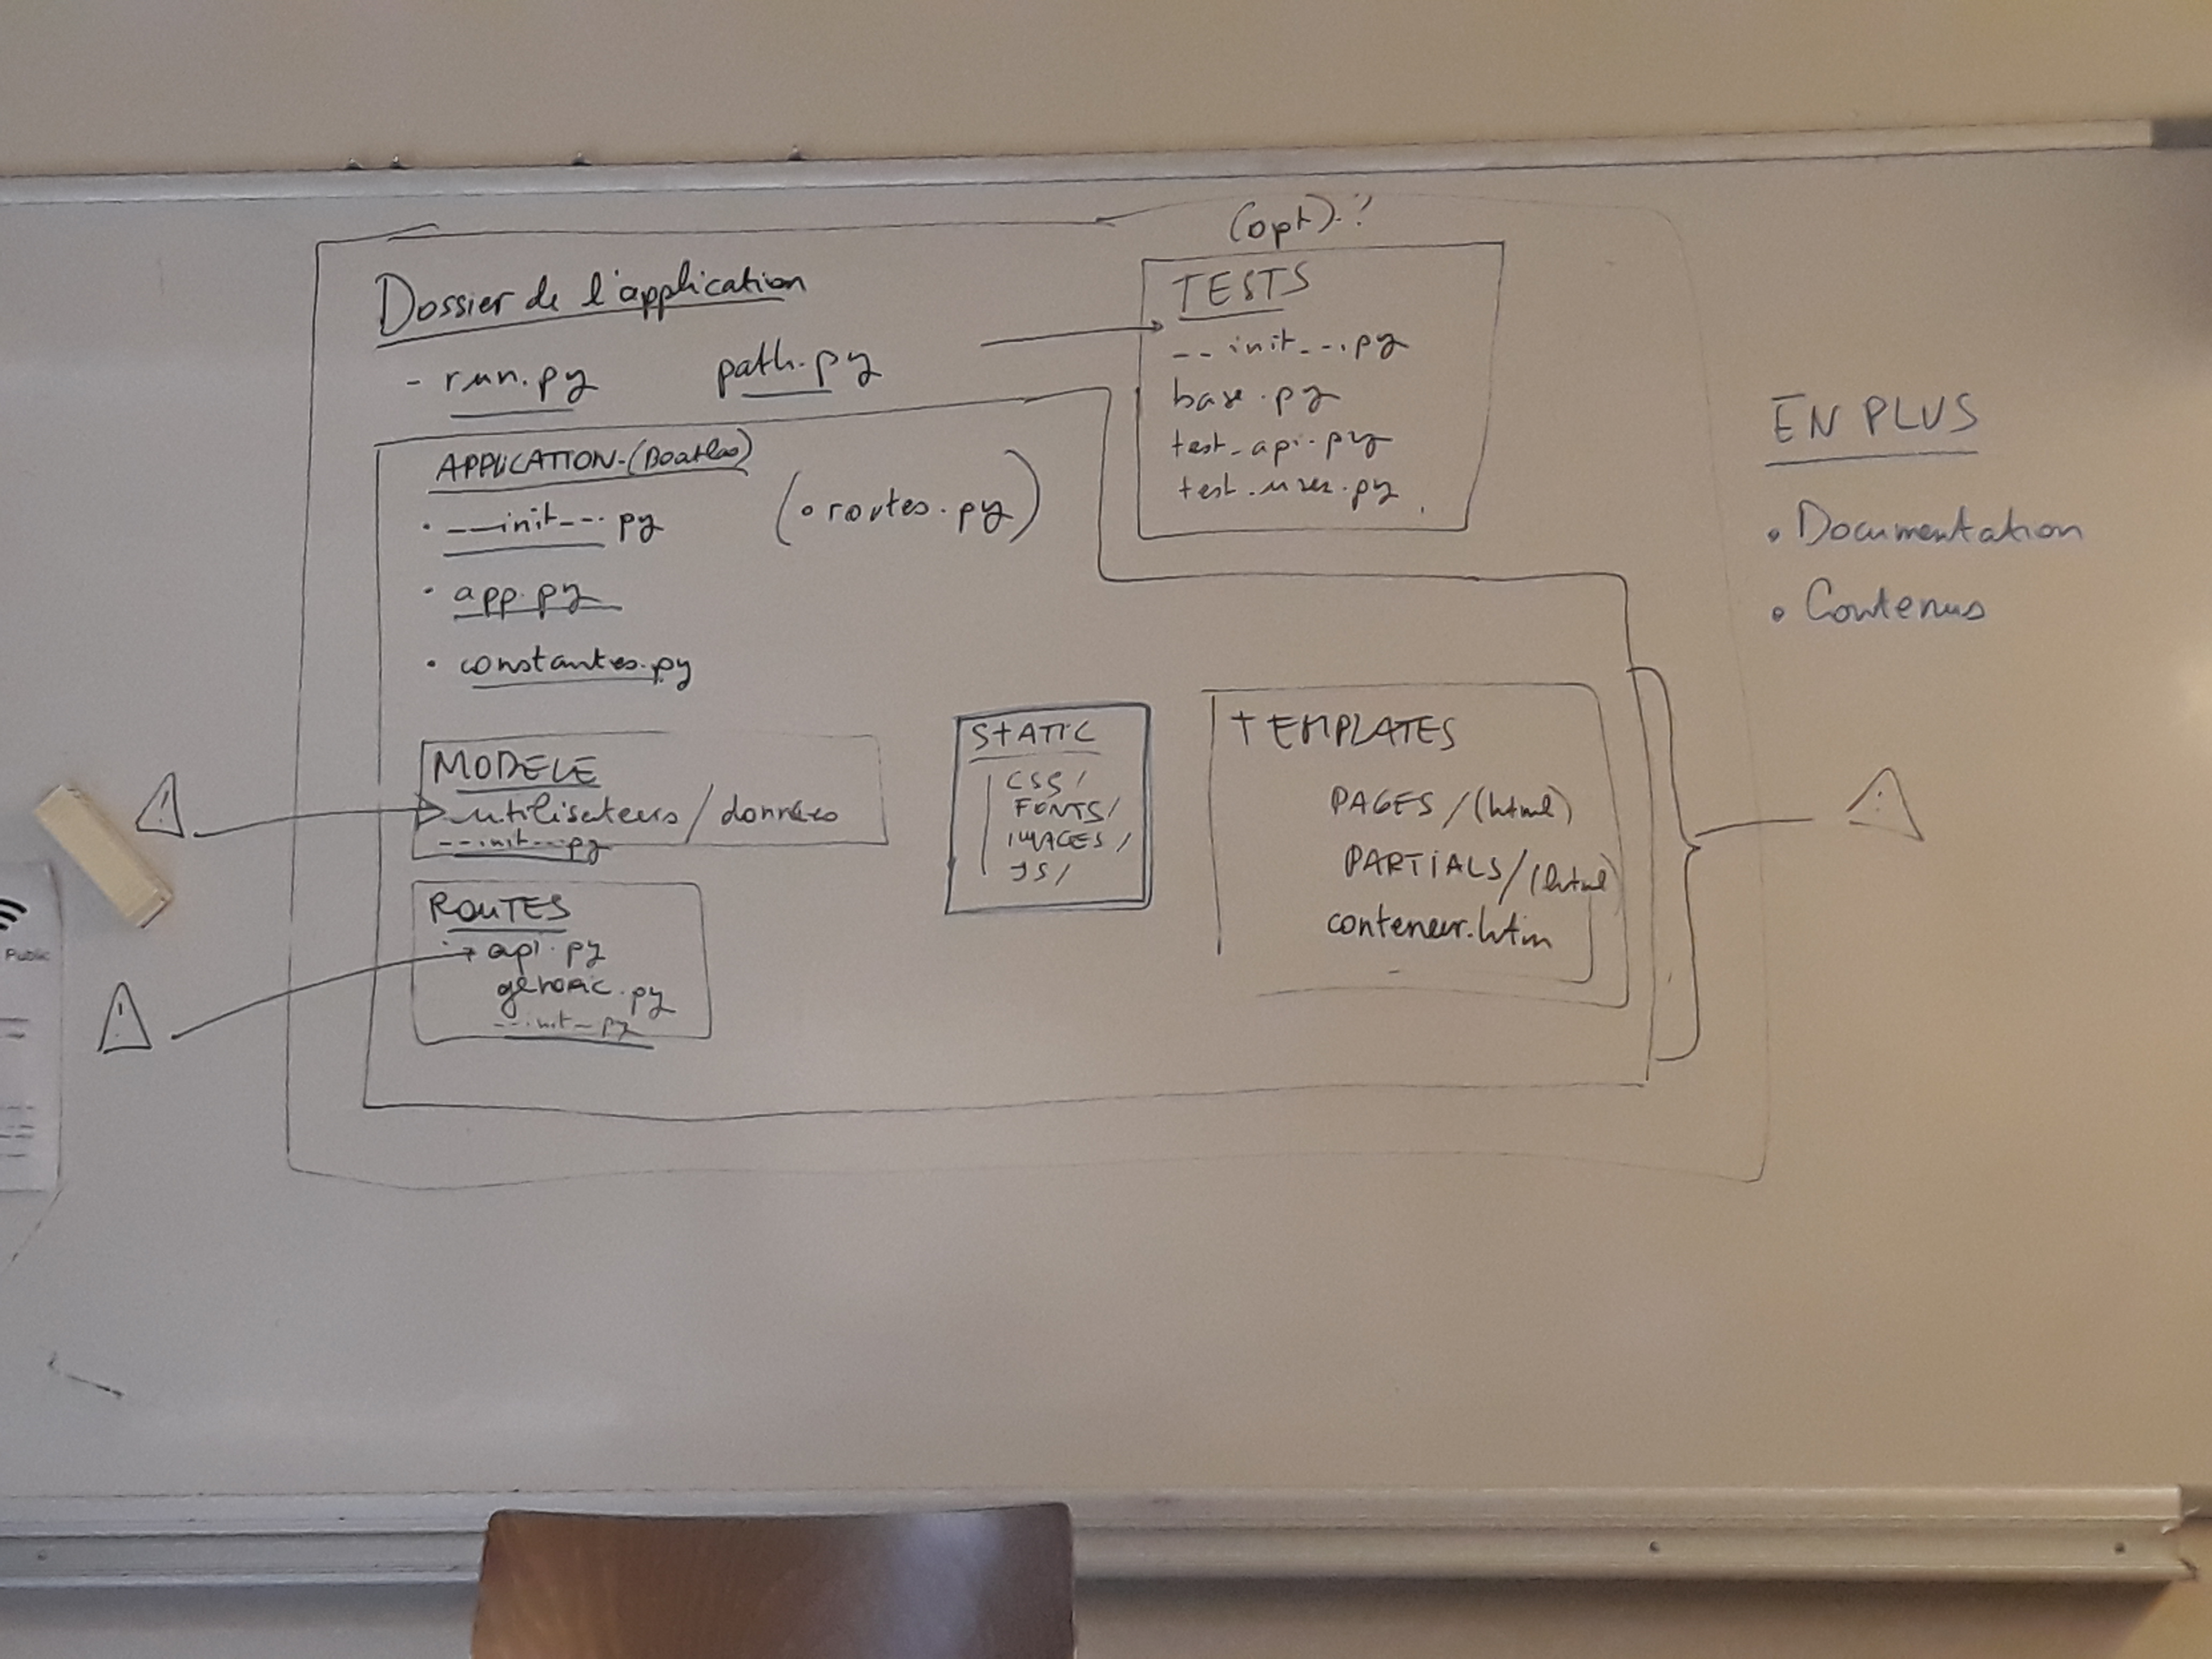 (opt).?
Dossier de l'application
- run.py path.py
TESTS
--init--.py
base.py
test-api.py
test.user.py
APPLICATION-
• __init--.py
(• routes.py)
• app.py
• constantes.py
MODELE
utilisateurs/données
--init--.py
ROUTES
api.py
generic.py
--init--py
STATIC
CSS/
FONTS/
IMAGES/
JS/
TEMPLATES
PAGES/(html)
PARTIALS/(html)
conteneur.htm
EN PLUS
• Documentation
• Contenus
!
!
!
Public